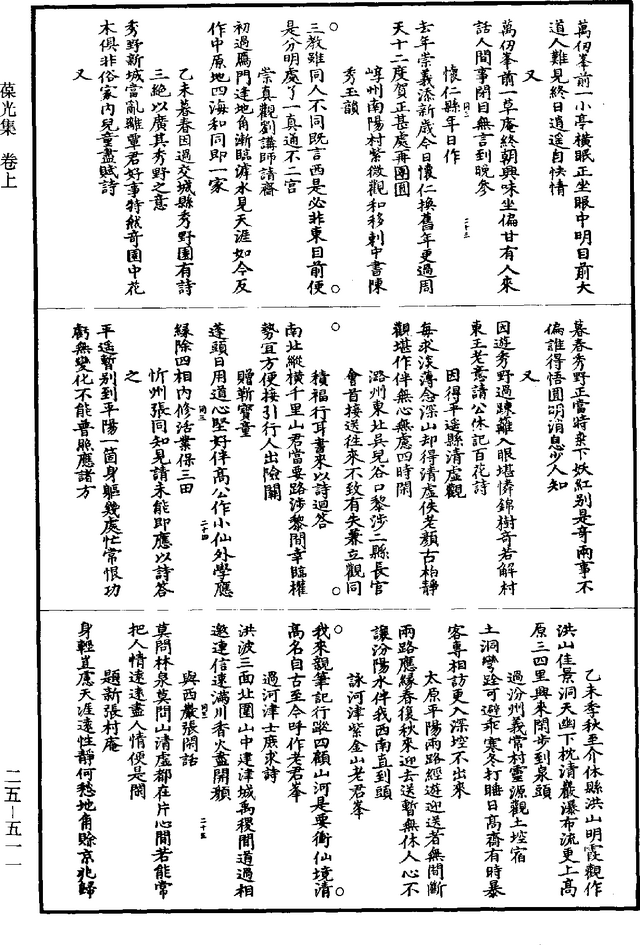 葆光集 卷上
萬仞峯前一小亭橫眠正坐眼中明目前大
道人難見終日逍遥自快情
又
萬仞峯前一草庵終朝興味坐偏甘有人來
話人間事閉目無言到晚參
懷仁縣年日作
去年崇義添新歲今日懷仁換舊年更過周
天十二度賀正甚處再團圓
崞州南陽村紫微觀和移剌中書陳
秀玉韻
三教雖同人不同既言西是必非東目前便
是分明處了一真通不二宫
崇真觀劉講師請齋
初過鴈門逢地角漸臨滹水見天涯如今反
作中原地四海和同即一家
乙未暮春因過交城縣秀野園有詩
三絕以廣其秀野之意
秀野新城當亂離覃君好事特然奇園中花
木俱非俗家內兒童盡賦詩
又
暮春秀野正當時桒下妖紅別是奇兩事不
偏誰得悟圓明消息少人知
又
因遊秀野過踈籬入眼堪憐錦樹奇若解村
東王老意請公休記百花詩
因得平遥縣清虛觀
每求淡薄念深山却得清虛佚老顏古栢靜
觀堪作伴無心無慮四時閑
潞州東北吳兒谷口黎涉二縣長官
會首接送往來不致有失兼立觀同
積福行耳書來以詩迴答
南北縱橫千里山君當要路涉黎間幸臨權
勢宜方便接引行人出險關
贈靳寶童
蓬頭日用道心堅好伴高公作小仙外學應
緣除四相內修活業保三田
忻州張同知見請未能即應以詩答
之
平遥暫別到平陽一箇身軀幾處忙常恨功
虧無變化不能普照應諸方
乙未季秋至介休縣洪山明霞觀作
洪山佳景洞天幽下枕清巖瀑布流更上高
原三四里興來閑步到泉頭
過汾州義常村靈源觀土埪宿
土洞彎跧可避乖寒冬打睡日高齋有時暴
客專相訪更入深埪不出來
太原平陽兩路經遊迎送者無間斷
兩路應緣春復秋來迎去送暫無休人心不
讓汾陽水伴我西南直到頭
詠河津紫金山老君峯
我來觀筆記行蹤四顧山河是要衝仙境清
高名自古至今呼作老君峯
過河津士庶求詩
洪波三面北圍山中建津城禹稷間道過相
邀連信遠滿川香火盡開顏
與西巖張閑話
莫問林泉莫問山清虛都在片心間若能常
把人情遠遠盡人情便是閑
題新張村庵
身輕豈慮天涯遠性靜何愁地角賒京兆歸
二五—五一一